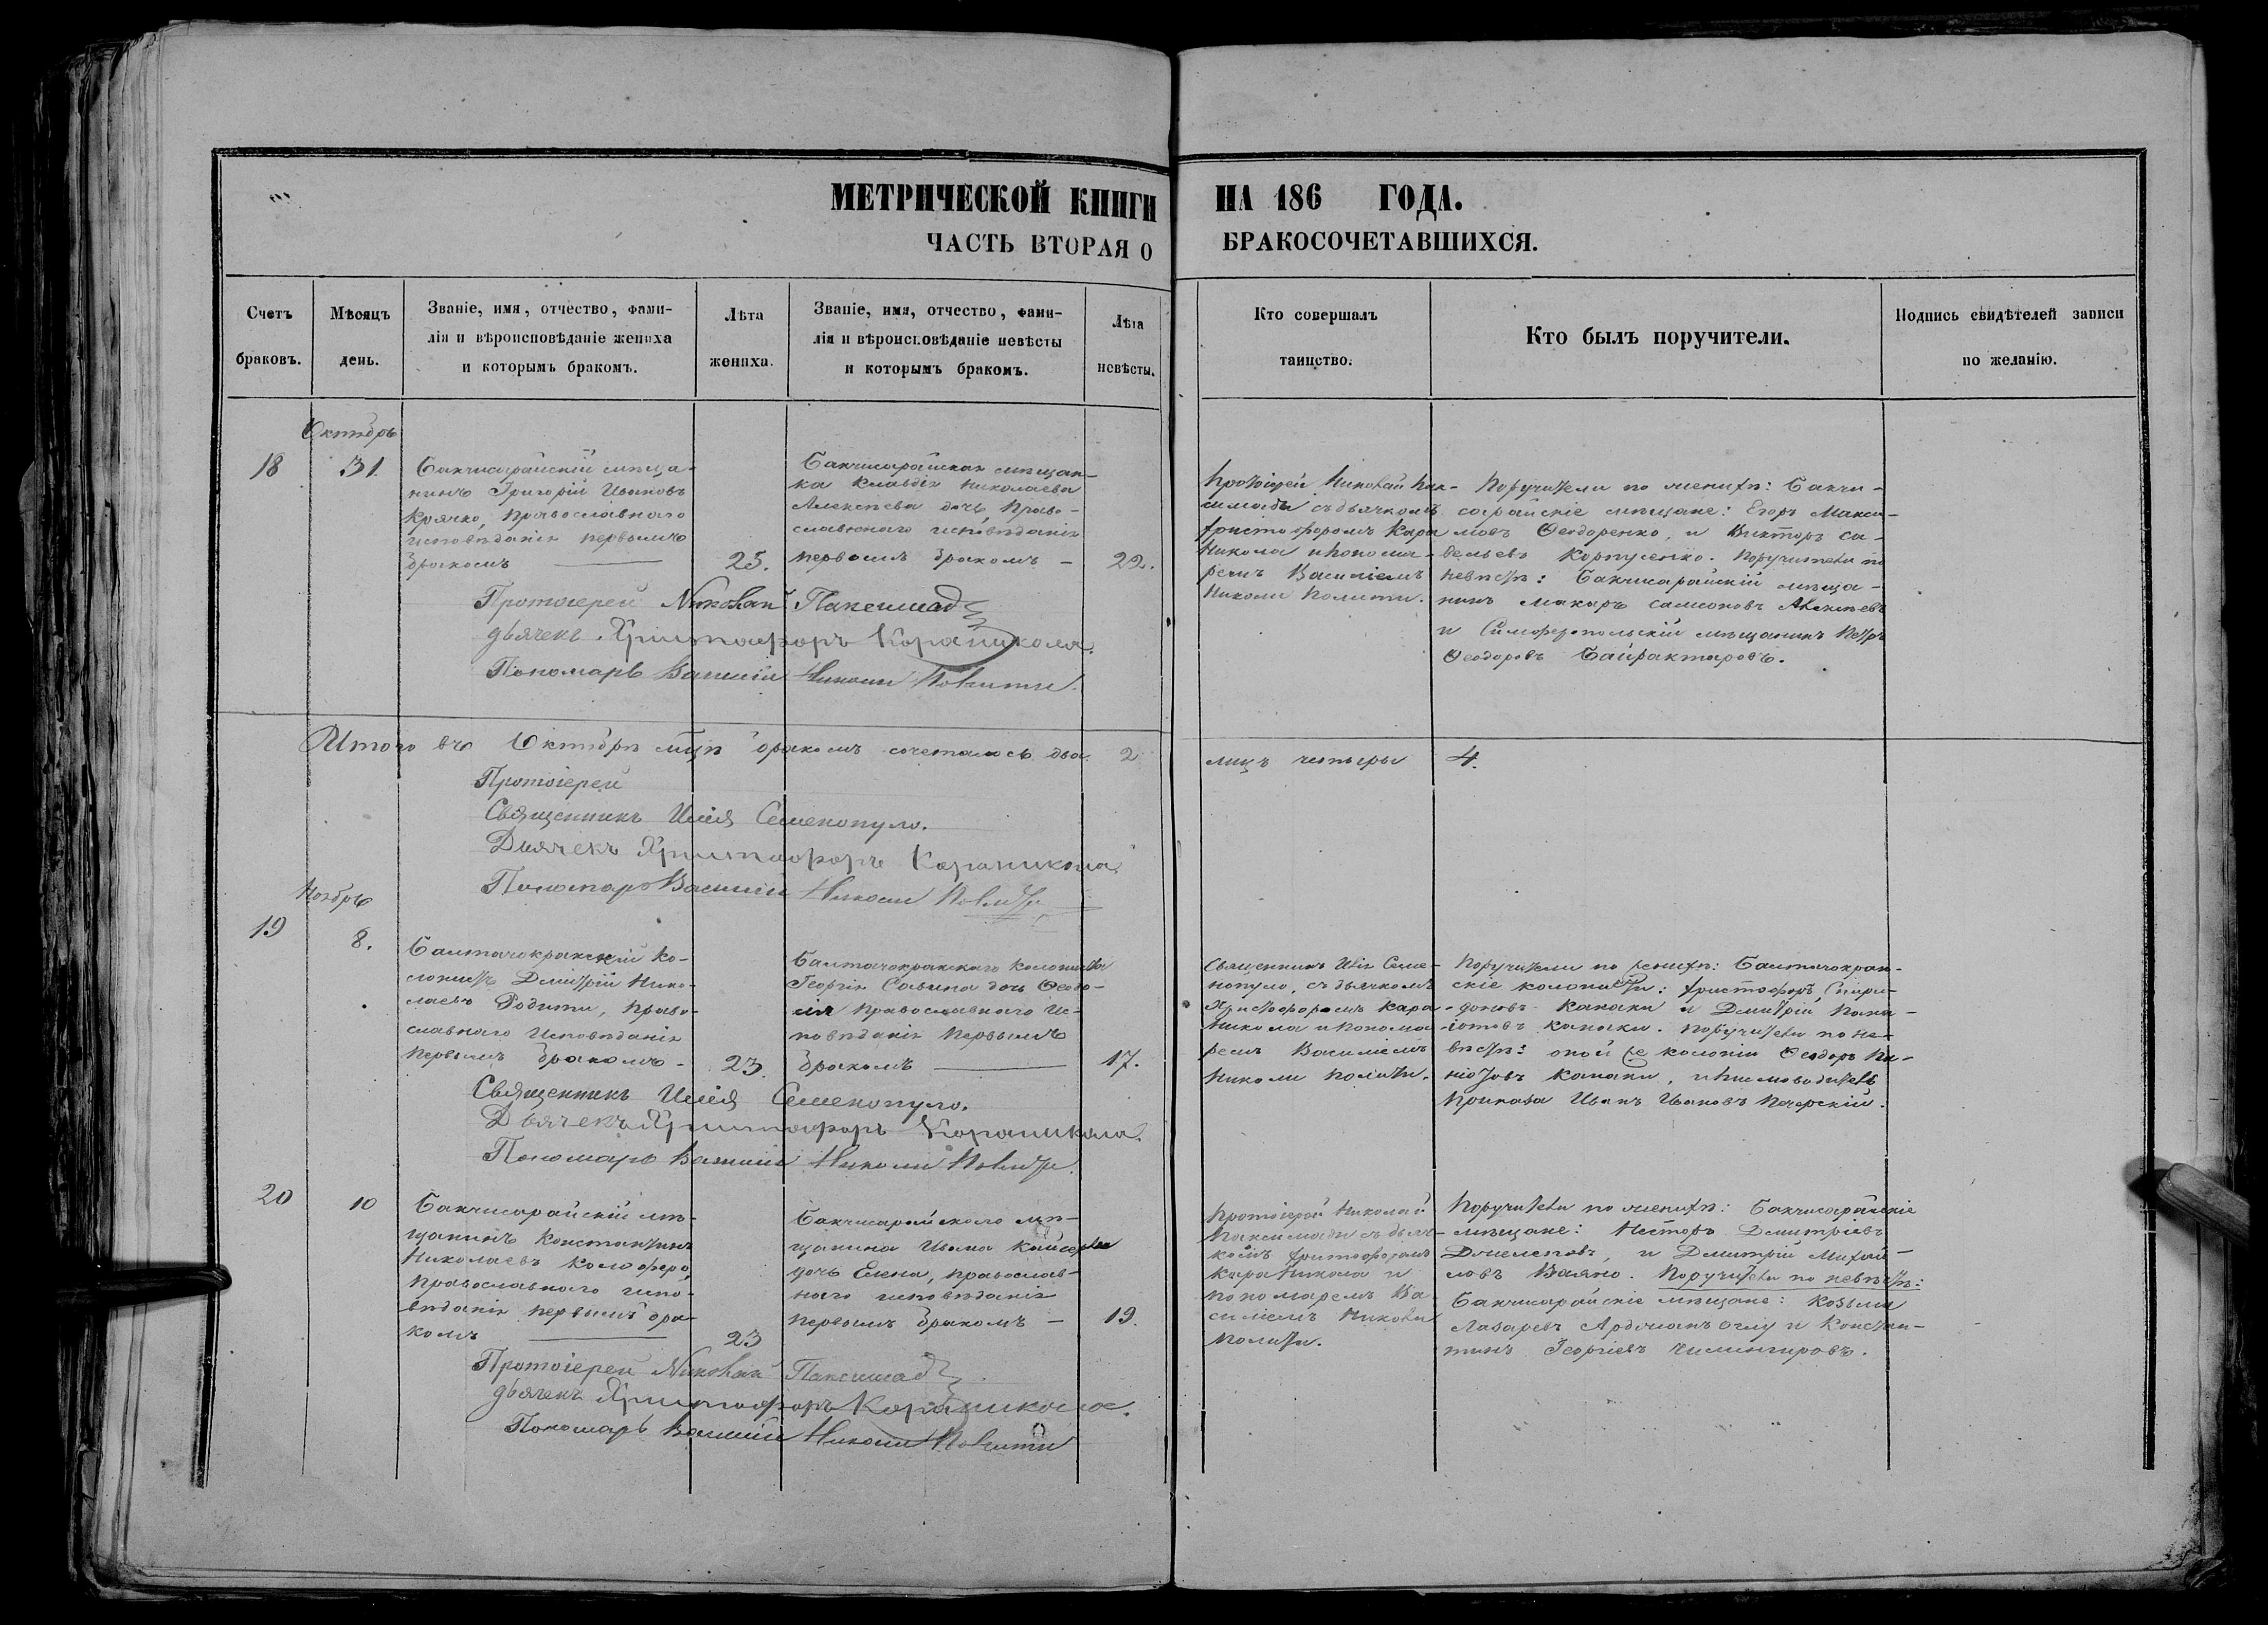 МЕТРИЧЕСКОЙ КНИГИ
ЧАСТЬ ВТОРАЯ О
НА 186 ГОДА.
БРАКОСОЧЕТАВШИХСЯ.
Счетъ
браковъ.
Мѣсяцъ
день.
Званіе, имя, отчество, фами-
лія и вѣроисповѣданіе жениха
и которымъ бракомъ.
Лѣта
жениха.
Званіе, имя, отчество, фами-
лія и вѣроисповѣданіе невѣсты
и которымъ бракомъ.
Лѣта
невѣсты.
Кто совершалъ
таинство.
Кто былъ поручители.
Подпись свидѣтелей записи
по желанію.
Октябрь
18
31.
Бахчисарайскій мѣща-
нинъ Григорій Ивановъ
Крячко, православнаго
исповѣданія первымъ
бракомъ
25.
Бахчисарайская мѣщан-
ка Клавдія Николаева
Алексѣева дочь, право-
славнаго исповѣданія
первымъ бракомъ –
22.
Протоіерей Николай Пак-
симади съ дьячкомъ
Христофоромъ Кара
Никола и понома-
ремъ Василіемъ
Николи Полити.
Поручители по женихѣ: Бахчи-
сарайскіе мѣщане: Егоръ Макси-
мовъ Ѳеодоренко, и Викторъ Са-
вельевъ Корпусенко. Поручители по
невѣстѣ: Бахчисарайскій мѣща-
нинъ Макаръ Самсоновъ Алексѣевъ
и Симферопольскій мѣщанинъ Петръ
Ѳеодоровъ Байрактаровъ.
Протоіерей Николай Паксимади
дьячекъ Христофоръ Караникола.
Пономарь Василій Николи Полити.
Итого въ Октябрѣ м-цѣ бракомъ сочеталось два 2
лицъ четыре 4.
Протоіерей
Священникъ Илія Семенопуло.
Дьячекъ Христофоръ Караникола
Пономарь Василій Николи Полити
Ноябрь
19
8.
Балтачокракскій ко-
лонистъ Дмитрій Нико-
лаевъ Родити, право-
славнаго исповѣданія
первымъ бракомъ –
23.
Балтачокракскаго колониста
Георгія Савина дочь Ѳеодо-
сія православнаго ис-
повѣданія первымъ
бракомъ
17.
Священникъ Илія Семе-
нопуло, съ дьячкомъ
Христофоромъ Кара
Никола и понома
ремъ Василіемъ
Николи Полити.
Поручители по женихѣ: Балтачокрак-
скіе колонисты: Христофоръ Спири-
доновъ Канаки и Дмитрій Пана-
іотовъ Канаки. Поручители по не-
вѣстѣ: оной же колоніи Ѳеодоръ Па-
ніотовъ Канаки, и письмоводитель
приказа Иванъ Ивановъ Печерскій.
Священникъ Илія Семенопуло.
Дьячекъ Христофоръ Караникола.
Пономарь Василій Николи Полити.
20
10
Бахчисарайскій мѣ-
щанинъ Константинъ
Николаевъ Калоферо,
православнаго испо-
вѣданія первымъ бра-
комъ
23
Бахчисарайскаго мѣ-
щанина Ивана
дочь Елена, православ-
наго исповѣданія
первымъ бракомъ –
19.
Протоіерей Николай
Паксимади съ дьяч-
комъ Христофоромъ
Кара Никола и
пономаремъ Ва
силіемъ Николи
Полити.
Поручители по женихѣ: Бахчисарайскіе
мѣщане: Несторъ Дмитріевъ
и Дмитрій Михай-
ловъ Поручители по невѣстѣ:
Бахчисарайскіе мѣщане: Козьма
Лазаревъ и Констан-
тинъ Георгіевъ Чилингировъ.
Протоіерей Николай Паксимади
дьячекъ Христофоръ Караникола.
Пономарь Василій Николи Полити